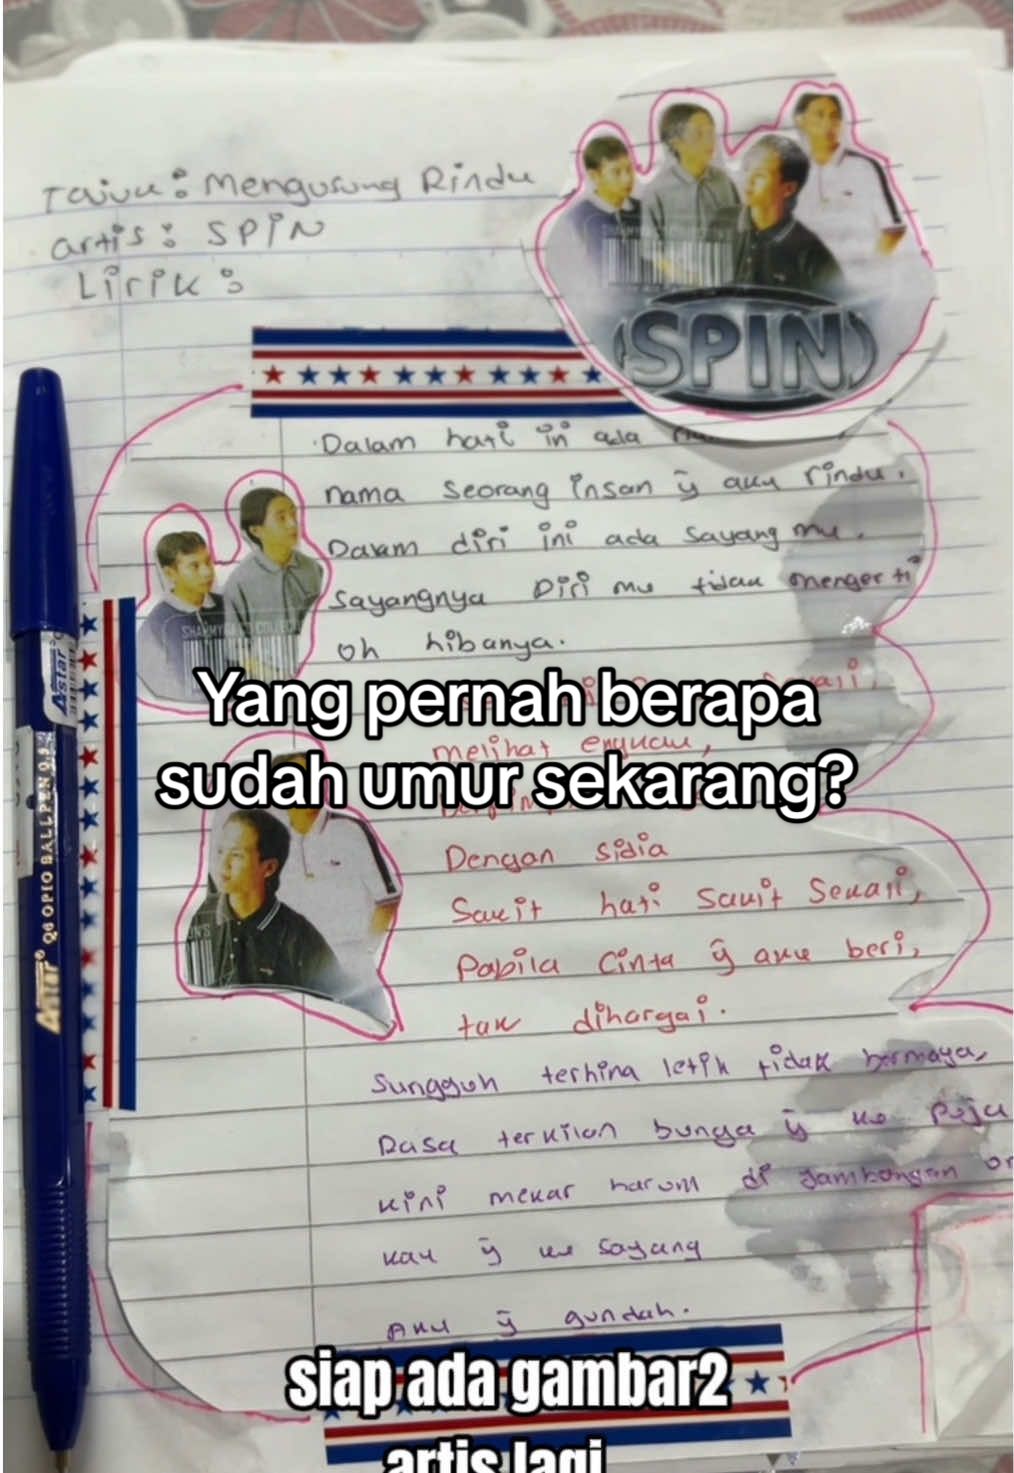 Tajuk : Mengusung Rindu
artis : SPIN
Lirik :
SPIN
Dalam hati in ada
nama seorang insan ÿ aku rindu.
Dalam diri ini ada sayang mu.
sayangnya Diri mu tidak mengerti
oh hibanya.
SHAMMY
COLLEC
Yang pernah berapa
sudah umur sekarang?
melihat engkau,
Dengan sidia
Sakit hati sakit sekali,
Pabila cinta ÿ aku beri,
tak dihargai.
Sungguh terhina letih tidak bermaya,
Rasa terkilan bunga ÿ ku puja
kini mekar harum di jambangan or
kau ÿ ku sayang
Aku ÿ gundah.
siap ada gambar2
artis lagi
Astar
Astar Q6 OPIO BALLPEN 0.5